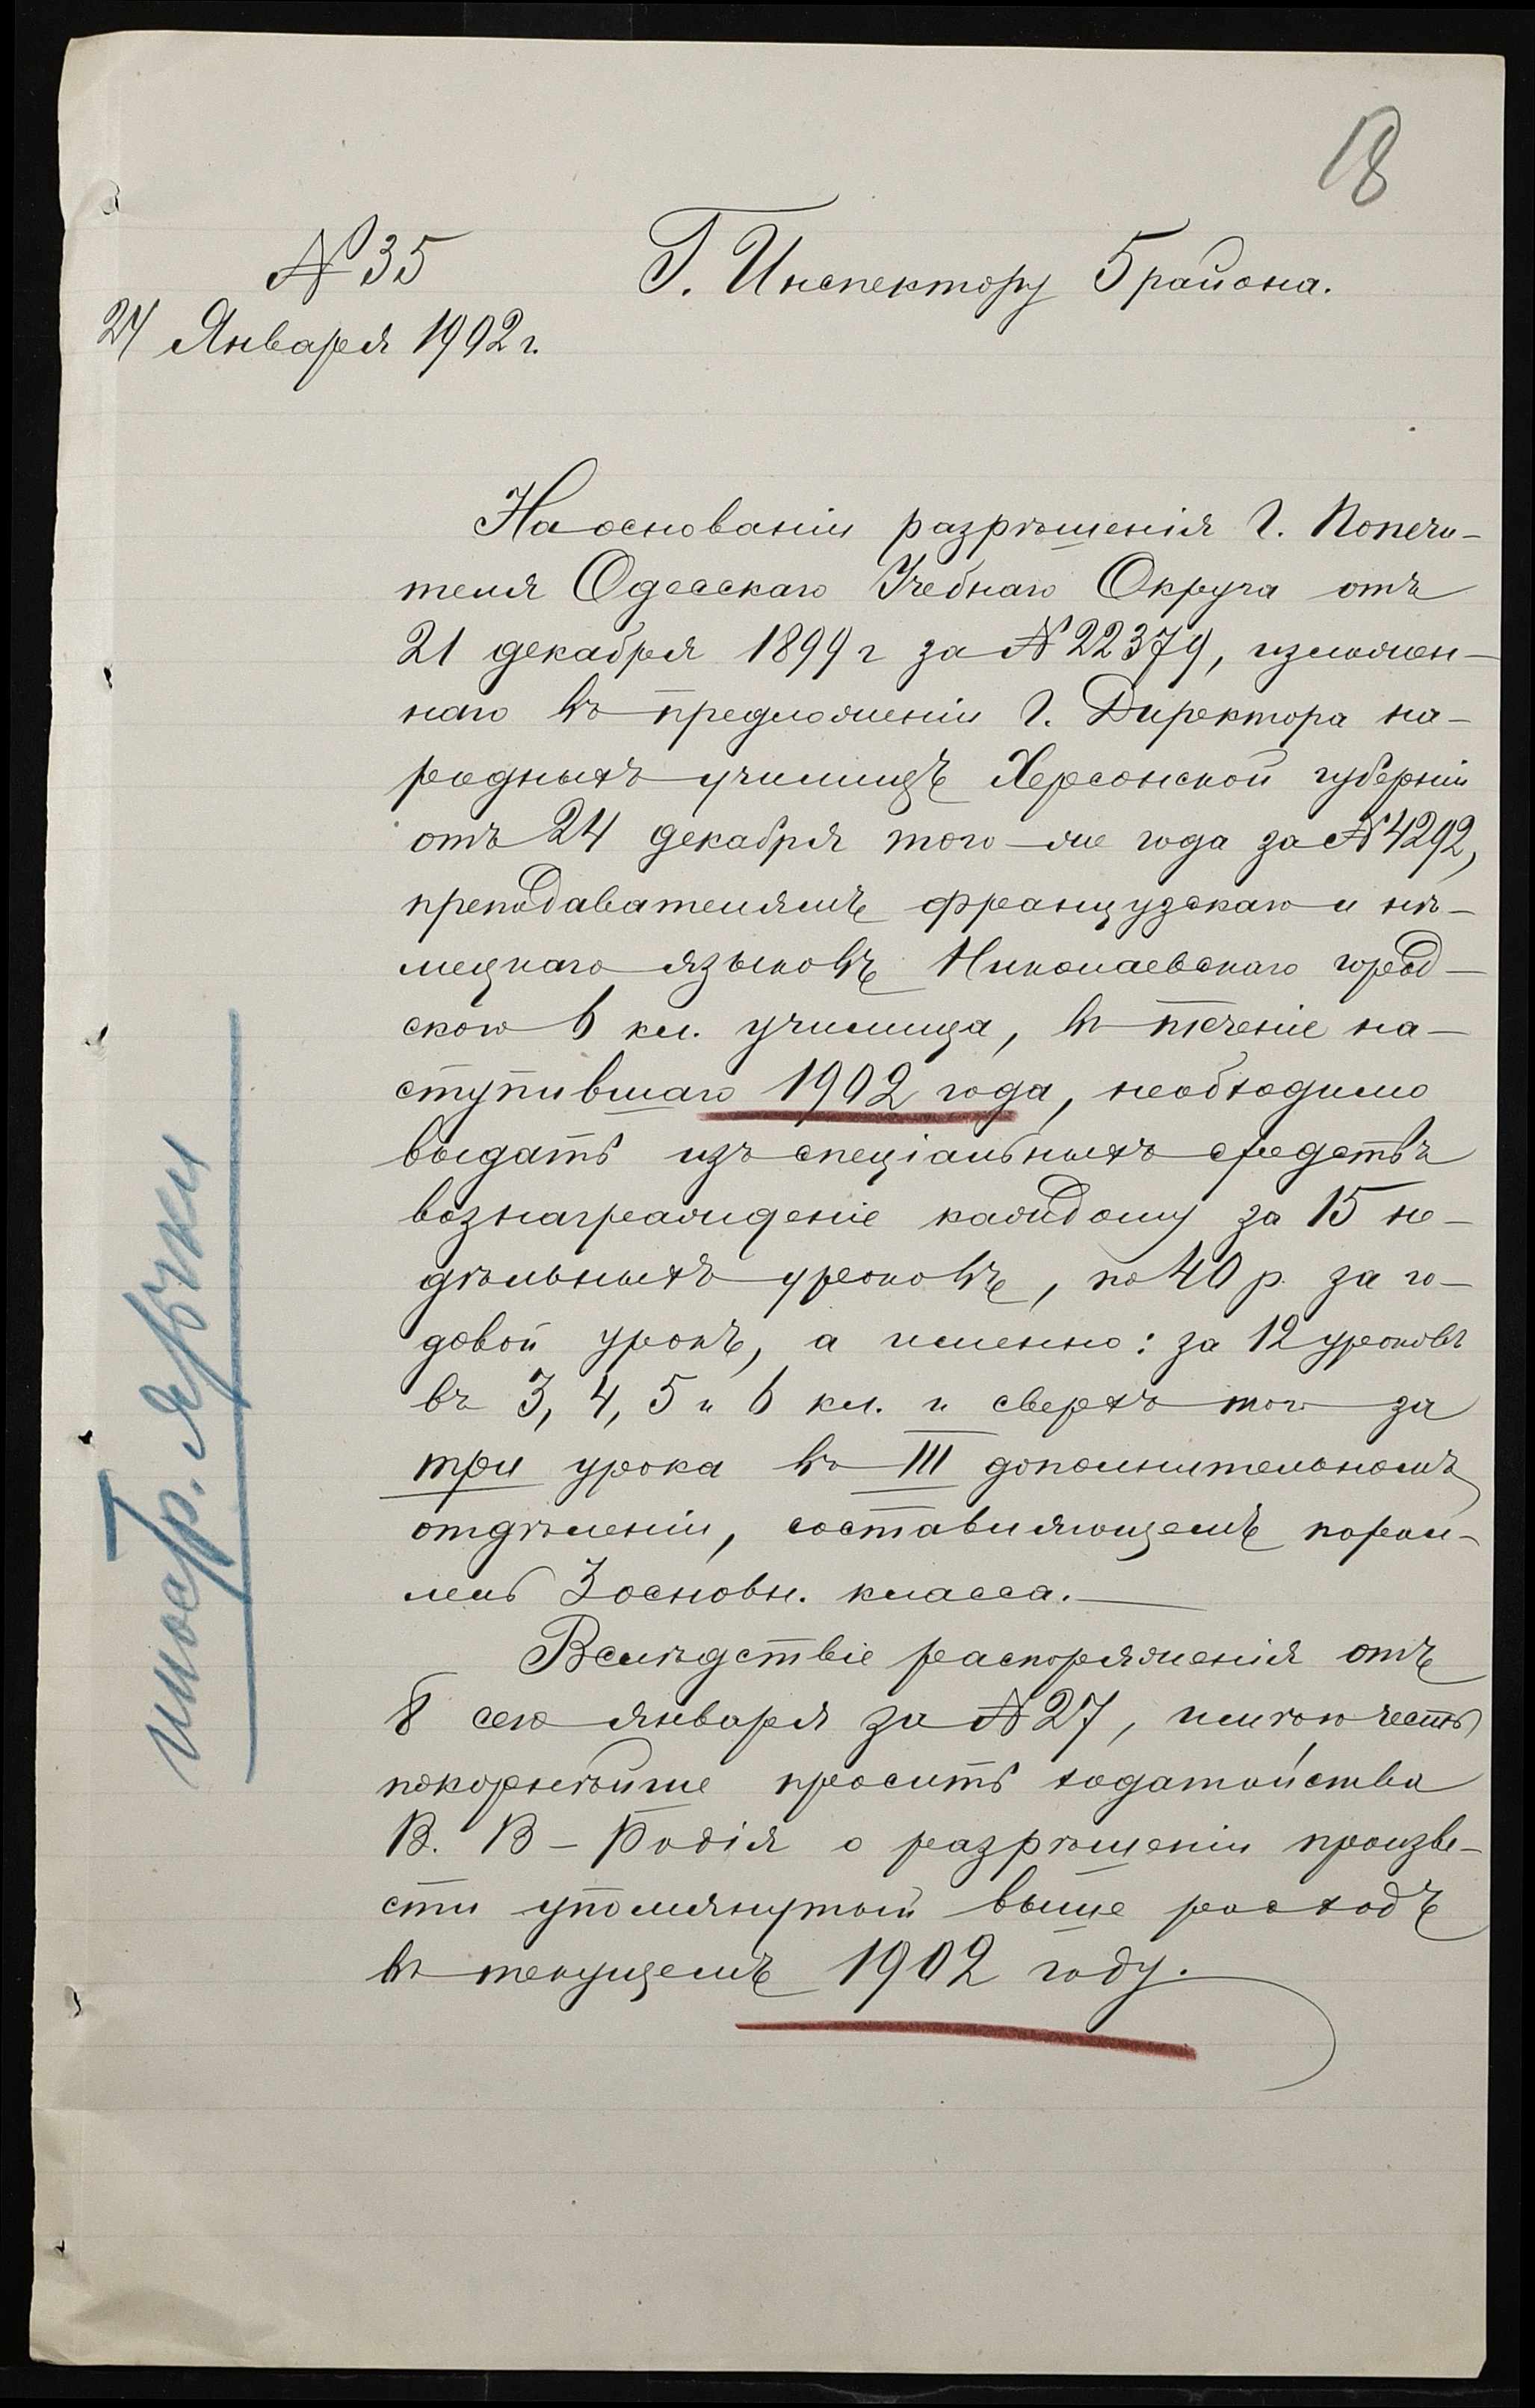 18
№ 35
Г. Инспектору 5 района.
24 Января 1902 г.
На основаніи разрѣшенія Г. Попечи-
теля Одесскаго Учебнаго Округа отъ
21 декабря 1899 г за № 22379, изложен-
наго въ предложеніи Г. Директора на-
родныхъ училищъ Херсонской губерніи
отъ 24 декабря того-же года за № 4292,
преподавателямъ французскаго и нѣ-
мецкаго языковъ Николаевскаго город-
ского 6 кл. училища, въ теченіе на-
ступившаго 1902 года, необходимо
выдать изъ спеціальныхъ средствъ
вознагражденіе каждому за 15 не-
дѣльныхъ уроковъ, по 40 р. за го-
довой урокъ, а именно: за 12 уроковъ
въ 3, 4, 5 и 6 кл. и сверхъ того за
три урока въ III дополнительномъ
отдѣленіи, составляющемъ парал-
лель 3 основн. класса.
Вслѣдствіе распоряженія отъ
8 сего января за № 27, имѣю честь
покорнѣйше просить ходатайства
В. В-Родія о разрѣшеніи произве-
сти упомянутый выше расходъ
въ текущемъ 1902 году.
иностр. языки